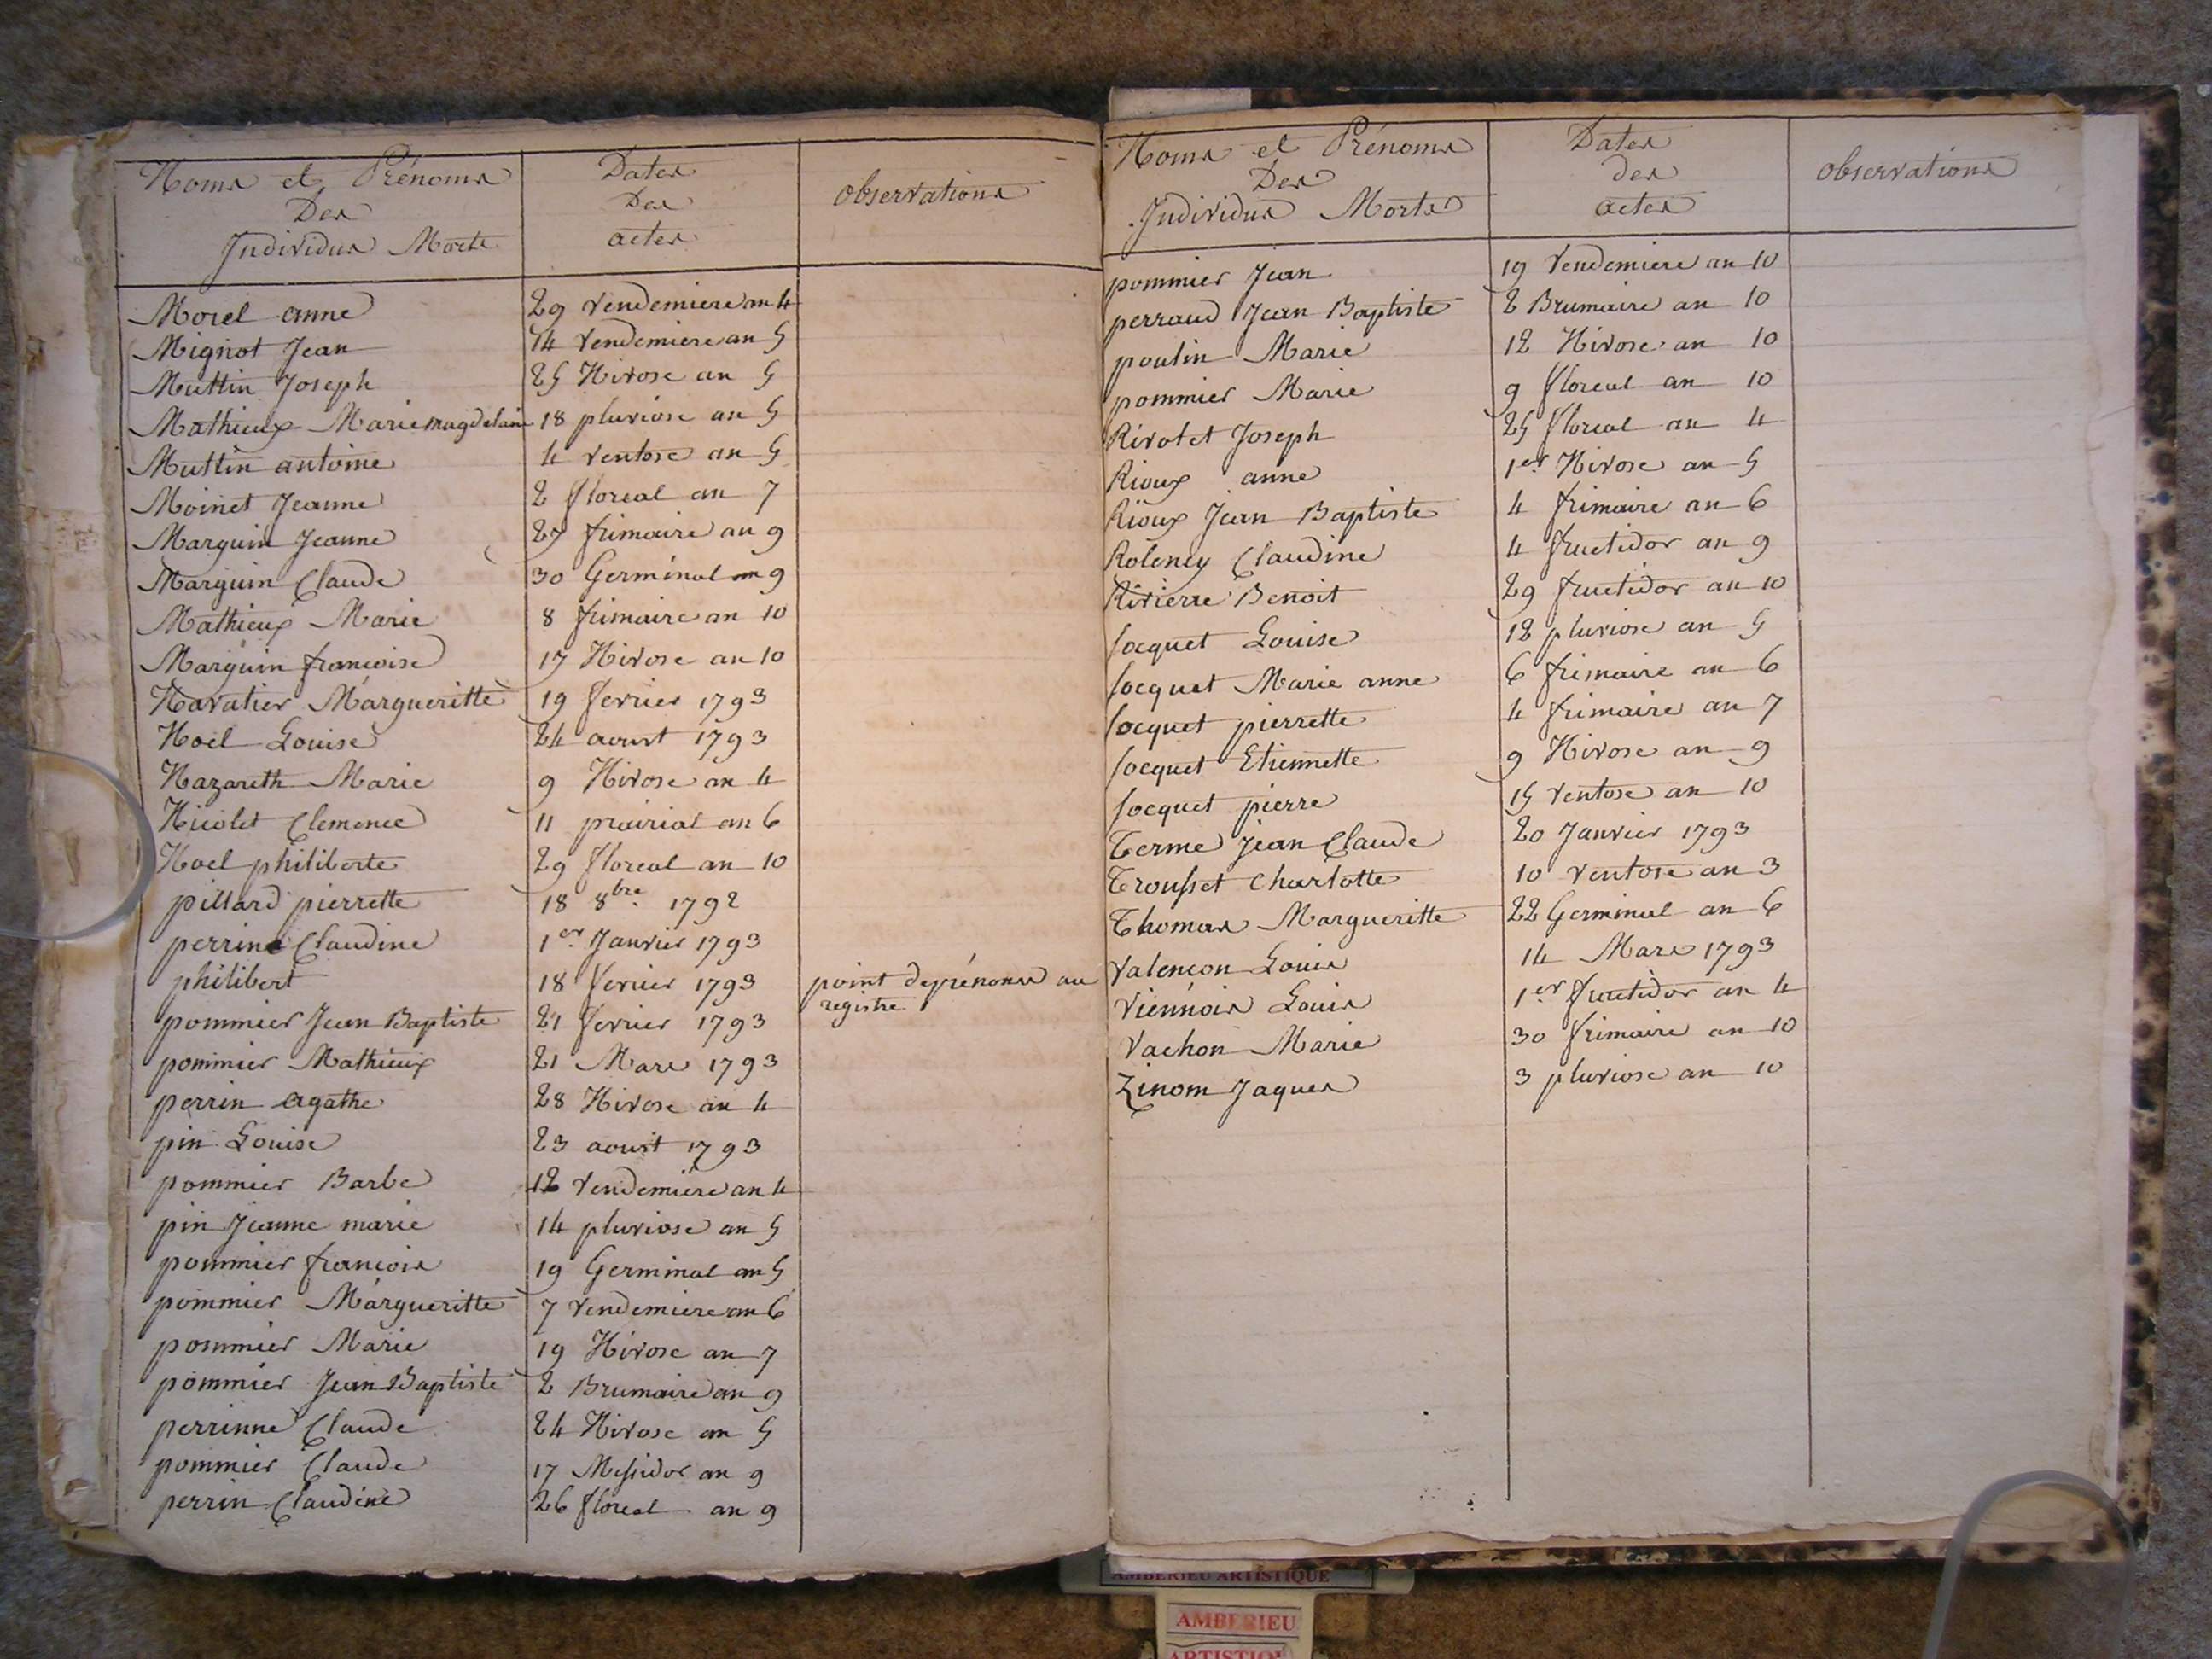 Noms et Prénoms
Des
Individus Morts
Dates
Des
actes
observations
Morel anne 29 vendemiere an 4
Mignot Jean 14 vendemiere an 5
Muttin Joseph 25 Nivose an 5
Mathieux Marie magdelaine 18 pluviose an 5
Muttin antoine 4 ventose an 5
Moinet Jeanne 2 floreal an 7
Marguin Jeanne 27 frimaire an 9
Marguin Claude 30 Germinal an 9
Mathieux Marie 8 frimaire an 10
Marguin francoise 17 Nivose an 10
Navatier Margueritte 19 fevrier 1793
Noël Louise 24 aoust 1793
Nazareth Marie 9 Nivose an 4
Nicolet Clemence 11 prairial an 6
Noel philiberte 29 floreal an 10
pillard pierrette 18 8bre 1792
perrine Claudine 1er Janvier 1793
philibert 18 fevrier 1793 point de prénoms au
registre
pommier Jean Baptiste 21 fevrier 1793
pommier Mathieux 21 Mars 1793
perrin agathe 28 Nivose an 4
pin Louise 23 aoust 1793
pommier Barbe 12 vendemiere an 4
pin Jeanne marie 14 pluviose an 5
pommier francois 19 Germinal an 5
pommier Margueritte 7 vendemiere an 6
pommier Marie 19 Nivose an 7
pommier Jean Baptiste 2 Brumaire an 9
perrinne Claude 24 Nivose an 5
pommier Claude 17 Messidor an 9
perrin Claudine 26 floreal an 9
Noms et Prénoms
Des
Individus Morts
Dates
des
actes
observations
pommier Jean 19 vendemiere an 10
perraud Jean Baptiste 2 Brumaire an 10
poulin Marie 12 Nivose an 10
pommier Marie 9 floreal an 10
Rivolet Joseph 25 floreal an 4
Rioux anne 1er Nivose an 5
Rioux Jean Baptiste 4 frimaire an 6
Roleney Claudine 4 fructidor an 9
Rivierre Benoit 29 fructidor an 10
Socquet Louise 12 pluviose an 5
Socquet Marie anne 6 frimaire an 6
Socquet pierrette 4 frimaire an 7
Socquet Etiennette 9 Nivose an 9
Socquet pierre 15 ventose an 10
Terme Jean Claude 20 Janvier 1793
Trousset Charlotte 10 ventose an 3
Thomas Margueritte 22 Germinal an 6
Valençon Louis 14 Mars 1793
Viennois Louis 1er fructidor an 4
Vachon Marie 30 frimaire an 10
Zinom Jaques 3 pluviose an 10
AMBERIEU ARTISTIQUE
AMBERIEU
ARTISTIQUE